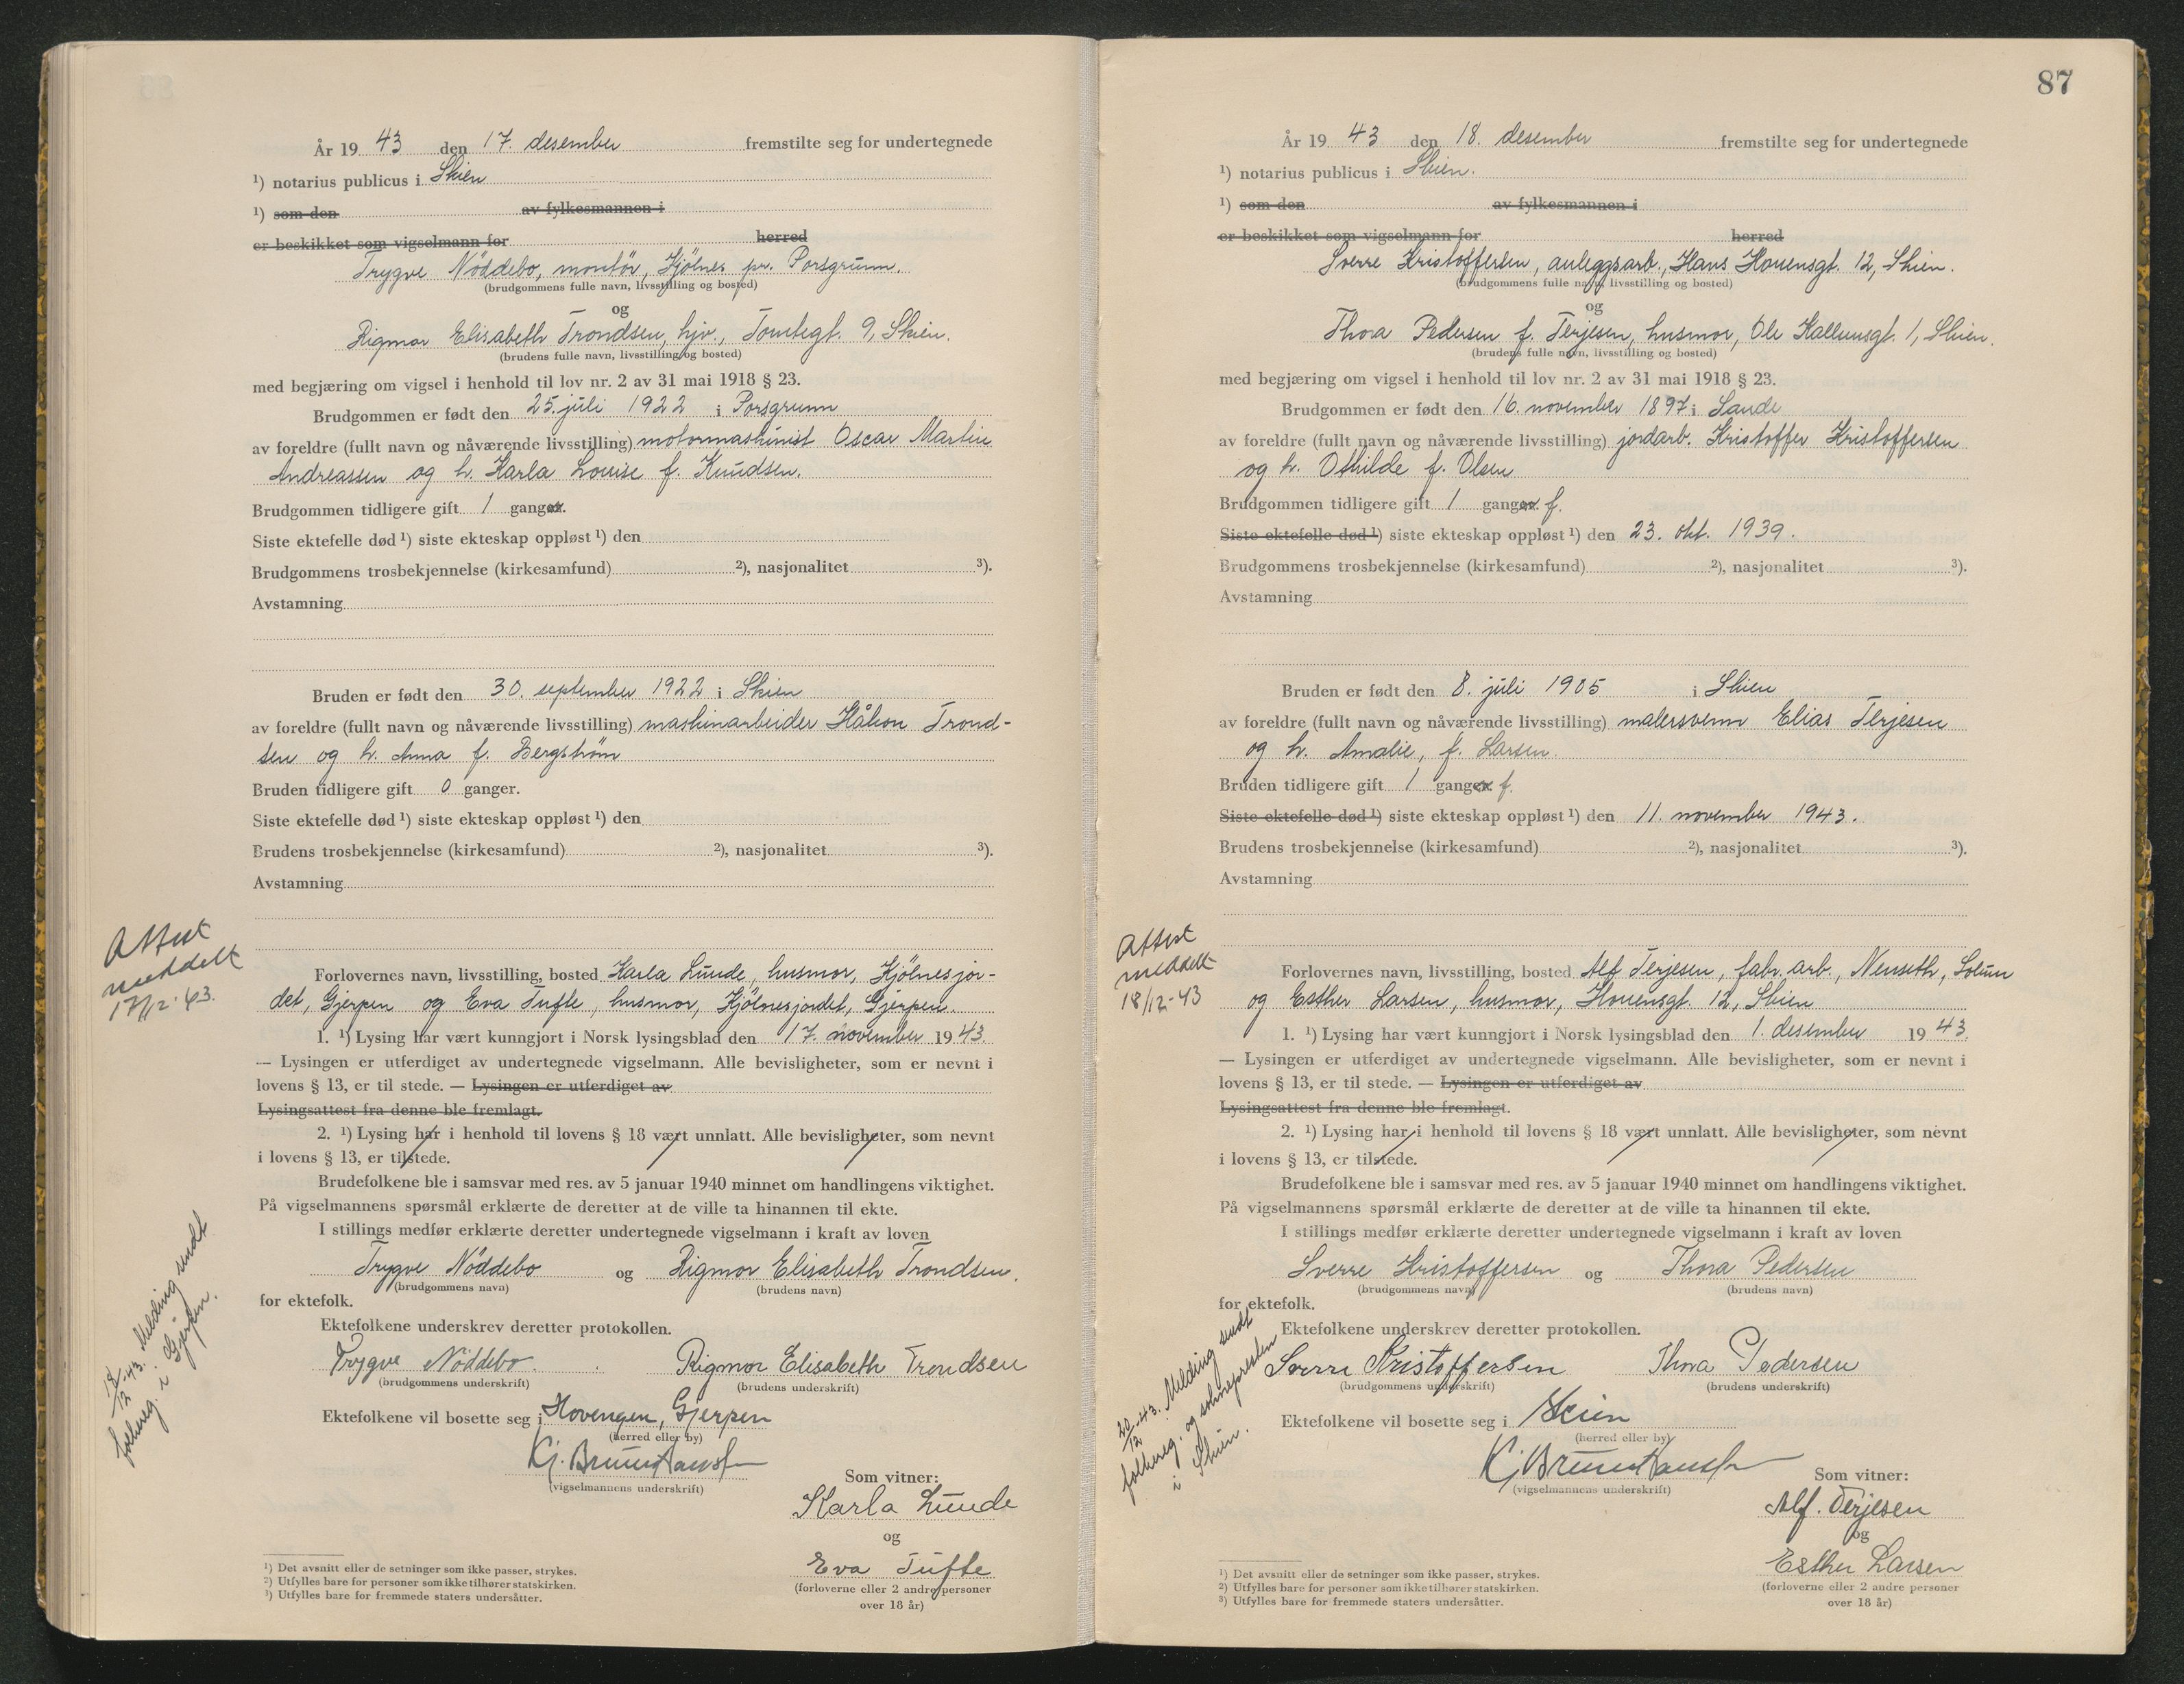 År 19 43 den 17. desember fremstilte seg for undertegnede
¹) notarius publicus i Skien
¹) som den av fylkesmannen i
er beskikket som vigselmann for herred
Trygve Nöddebo, montör, Kjölnes pr. Porsgrunn.
(brudgommens fulle navn, livsstilling og bosted)
og
Rigmor Elisabeth Trondsen, hjv., Tomtegt. 9, Skien.
(brudens fulle navn, livsstilling og bosted)
med begjæring om vigsel i henhold til lov nr. 2 av 31 mai 1918 § 23.
Brudgommen er født den 25. juli 1922 i Porsgrunn
av foreldre (fullt navn og nåværende livsstilling) motormaskinist Oscar Martin
Andreassen og h. Karla Louise f. Knudsen.
Brudgommen tidligere gift 1 ganger.
Siste ektefelle død ¹) siste ekteskap oppløst ¹) den
Brudgommens trosbekjennelse (kirkesamfund) ²), nasjonalitet ³).
Avstamning
Bruden er født den 30. september 1922 i Skien
av foreldre (fullt navn og nåværende livsstilling) maskinarbeider Håkon Trond-
sen og h. Anna f. Bergström
Bruden tidligere gift 0 ganger.
Siste ektefelle død ¹) siste ekteskap oppløst ¹) den
Brudens trosbekjennelse (kirkesamfund) ²), nasjonalitet ³).
Avstamning
Attest
meddelt
17/12-43.
Forlovernes navn, livsstilling, bosted Karla Lunde, husmor, Kjölnesjor-
det, Gjerpen og Eva Tufte, husmor, Kjölnesjordet, Gjerpen.
1. ¹) Lysing har vært kunngjort i Norsk lysingsblad den 17. november 19 43.
— Lysingen er utferdiget av undertegnede vigselmann. Alle bevisligheter, som er nevnt i
lovens § 13, er til stede. — Lysingen er utferdiget av
Lysingsattest fra denne ble fremlagt.
2. ¹) Lysing har i henhold til lovens § 18 vært unnlatt. Alle bevisligheter, som nevnt
i lovens § 13, er tilstede.
Brudefolkene ble i samsvar med res. av 5 januar 1940 minnet om handlingens viktighet.
På vigselmannens spørsmål erklærte de deretter at de ville ta hinannen til ekte.
I stillings medfør erklærte deretter undertegnede vigselmann i kraft av loven
Trygve Nöddebo og Rigmor Elisabeth Trondsen.
(brudgommens navn) (brudens navn)
for ektefolk.
Ektefolkene underskrev deretter protokollen.
Trygve Nöddebo. Rigmor Elisabeth Trondsen
(brudgommens underskrift) (brudens underskrift)
18/12-43. Melding sendt
folkereg. i Gjerpen.
Ektefolkene vil bosette seg i Hovengen, Gjerpen
(herred eller by)
Kj. Bruun Hansen
(vigselmannens underskrift)
Som vitner:
Karla Lunde
og
Eva Tufte
(forloverne eller 2 andre personer
over 18 år)
¹) Det avsnitt eller de setninger som ikke passer, strykes.
²) Utfylles bare for personer som ikke tilhører statskirken.
³) Utfylles bare for fremmede staters undersåtter.
87
År 19 43 den 18. desember fremstilte seg for undertegnede
¹) notarius publicus i Skien.
¹) som den av fylkesmannen i
er beskikket som vigselmann for herred
Sverre Kristoffersen, anleggsarb., Hans Houensgt. 12, Skien.
(brudgommens fulle navn, livsstilling og bosted)
og
Thora Pedersen f. Terjesen, husmor, Ole Kallumsgt. 1, Skien.
(brudens fulle navn, livsstilling og bosted)
med begjæring om vigsel i henhold til lov nr. 2 av 31 mai 1918 § 23.
Brudgommen er født den 16. november 1897 i Sande
av foreldre (fullt navn og nåværende livsstilling) jordarb. Kristoffer Kristoffersen
og h. Othilde f. Olsen
Brudgommen tidligere gift 1 ganger. f.
Siste ektefelle død ¹) siste ekteskap oppløst ¹) den 23. okt. 1939.
Brudgommens trosbekjennelse (kirkesamfund) ²), nasjonalitet ³).
Avstamning
Bruden er født den 8. juli 1905 i Skien
av foreldre (fullt navn og nåværende livsstilling) malersvenn Elias Terjesen
og h. Amalie, f. Larsen.
Bruden tidligere gift 1 ganger. f.
Siste ektefelle død ¹) siste ekteskap oppløst ¹) den 11. november 1943.
Brudens trosbekjennelse (kirkesamfund) ²), nasjonalitet ³).
Avstamning
Attest
meddelt
18/12-43
Forlovernes navn, livsstilling, bosted Alf Terjesen, fabr. arb., Nenseth, Solum
og Esther Larsen, husmor, Houensgt. 12, Skien
1. ¹) Lysing har vært kunngjort i Norsk lysingsblad den 1. desember 19 43.
— Lysingen er utferdiget av undertegnede vigselmann. Alle bevisligheter, som er nevnt i
lovens § 13, er til stede. — Lysingen er utferdiget av
Lysingsattest fra denne ble fremlagt.
2. ¹) Lysing har i henhold til lovens § 18 vært unnlatt. Alle bevisligheter, som nevnt
i lovens § 13, er tilstede.
Brudefolkene ble i samsvar med res. av 5 januar 1940 minnet om handlingens viktighet.
På vigselmannens spørsmål erklærte de deretter at de ville ta hinannen til ekte.
I stillings medfør erklærte deretter undertegnede vigselmann i kraft av loven
Sverre Kristoffersen og Thora Pedersen
(brudgommens navn) (brudens navn)
for ektefolk.
Ektefolkene underskrev deretter protokollen.
Sverre Kristoffersen Thora Pedersen
(brudgommens underskrift) (brudens underskrift)
20/12-43. Melding sendt
folkereg. og sokneprest­en
i Skien.
Ektefolkene vil bosette seg i Skien
(herred eller by)
Kj Bruun Hansen
(vigselmannens underskrift)
Som vitner:
Alf. Terjesen
og
Esther Larsen
(forloverne eller 2 andre personer
over 18 år)
¹) Det avsnitt eller de setninger som ikke passer, strykes.
²) Utfylles bare for personer som ikke tilhører statskirken.
³) Utfylles bare for fremmede staters undersåtter.